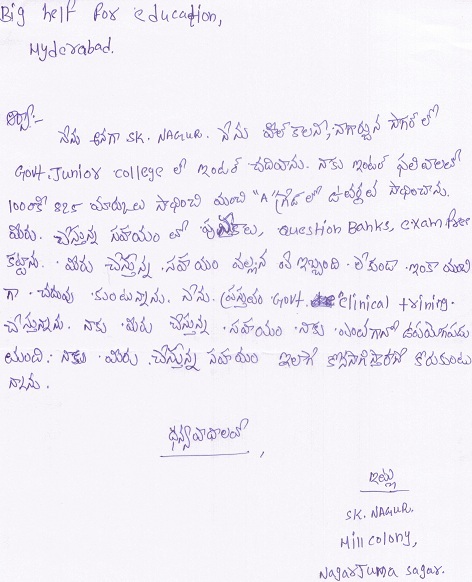 Big help for education,
Hyderabad.
ఆర్యా:-
నేను అనగా SK. NAGUR. నేను హిల్ కాలని, నాగార్జున సాగర్ లో
Govt. Junior college లో ఇంటర్ చదివాను. నాకు ఇంటర్ ఫలితాలలో
1000కి 825 మార్కులు సాధించి మంచి "A" గ్రేడ్ లో ఉత్తీర్ణత సాధించాను.
మీరు. చేస్తున్న సహాయం తో పుస్తకాలు, question Banks, exam fee
కట్టాను. మీరు చేస్తున్న సహాయం వల్లన ఏ ఇబ్బంది లేకుండా ఇంకా మంచి
గా చదువు కుంటున్నాను. నేను ప్రస్తుతం Govt. clinical trining.
చేస్తున్నాను. నాకు మీరు చేస్తున్న సహాయం నాకు ఎంతగానో ఉపయోగపడు
తుంది. నాకు మీరు చేస్తున్న సహాయం ఇలాగే కొనసాగించాలని కోరుకుంటు
న్నాను.
ధన్యవాదాలతో
,
ఇట్లు
SK. NAGUR.
Hill colony,
NagarJuna sagar.